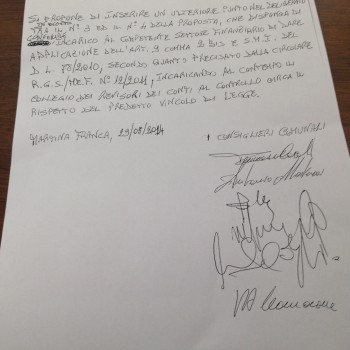 SI PROPONE DI INSERIRE UN ULTERIORE PUNTO NEL DELIBERATO
TRA IL N° 3 ED IL N° 4 DELLA PROPOSTA, CHE DISPONGA DI
CONFERIRE INCARICO AL COMPETENTE SETTORE FINANZIARIO DI DARE
APPLICAZIONE DELL'ART. 9 COMMA 2 BIS E S.M.I. DEL
D.L. 78/2010, SECONDO QUANTO PRECISATO DALLA CIRCOLARE
R.G.S./MEF N° 12/2011, INCARICANDO AL CONTEMPO IL
COLLEGIO DEI REVISORI DEI CONTI AL CONTROLLO CIRCA IL
RISPETTO DEL PREDETTO VINCOLO DI LEGGE.
MARTINA FRANCA, 29/05/2014
I CONSIGLIERI COMUNALI